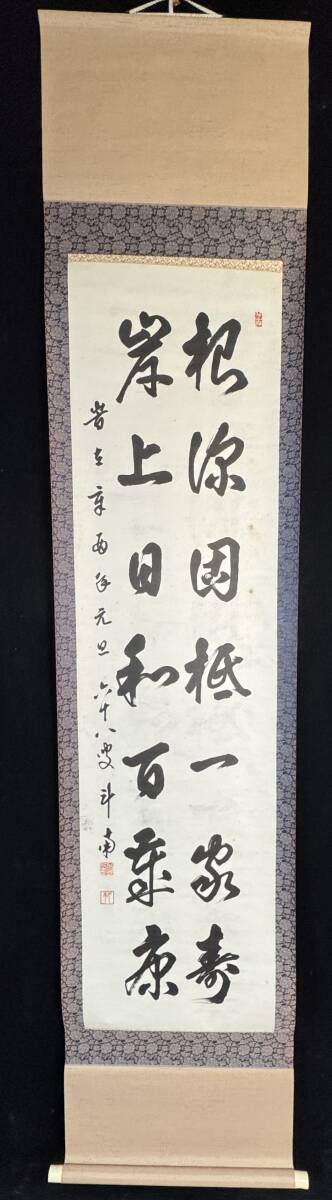 根深固柢一家寿
岸上日和百葉康
昔在辛酉年元旦 六十八叟 斗南